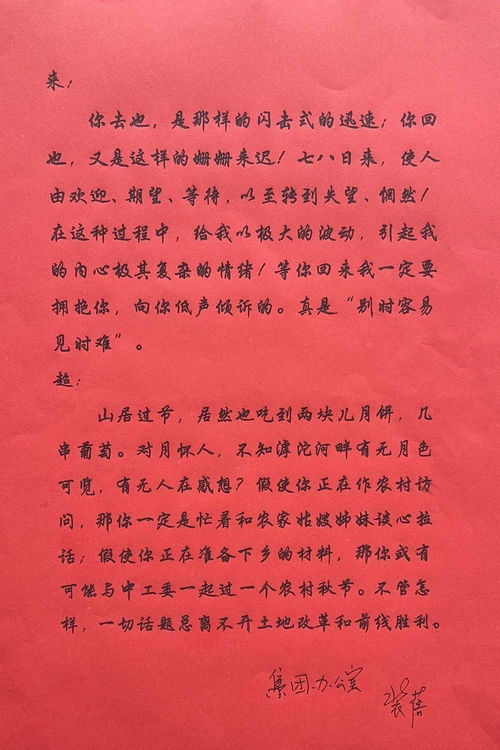 来，
你去也，是那样的闪击式的迅速；你回
也，又是这样的姗姗来迟！七八日来，使人
由欢迎、期望、等待，以至转到失望、惘然！
在这种过程中，给我以极大的波动，引起我
的内心极其复杂的情绪！等你回来我一定要
拥抱你，向你低声倾诉的。真是“别时容易
见时难”。
超：
山居过节，居然也吃到两块儿月饼，几
串葡萄。对月怀人，不知滹沱河畔有无月色
可览，有无人在感想？假使你正在作农村访
问，那你一定是忙着和农家姑嫂姊妹谈心拉
话；假使你正在准备下乡的材料，那你或有
可能与中工委一起过一个农村秋节。不管怎
样，一切话题总离不开土地改革和前线胜利。
集团办公室 裴蓓